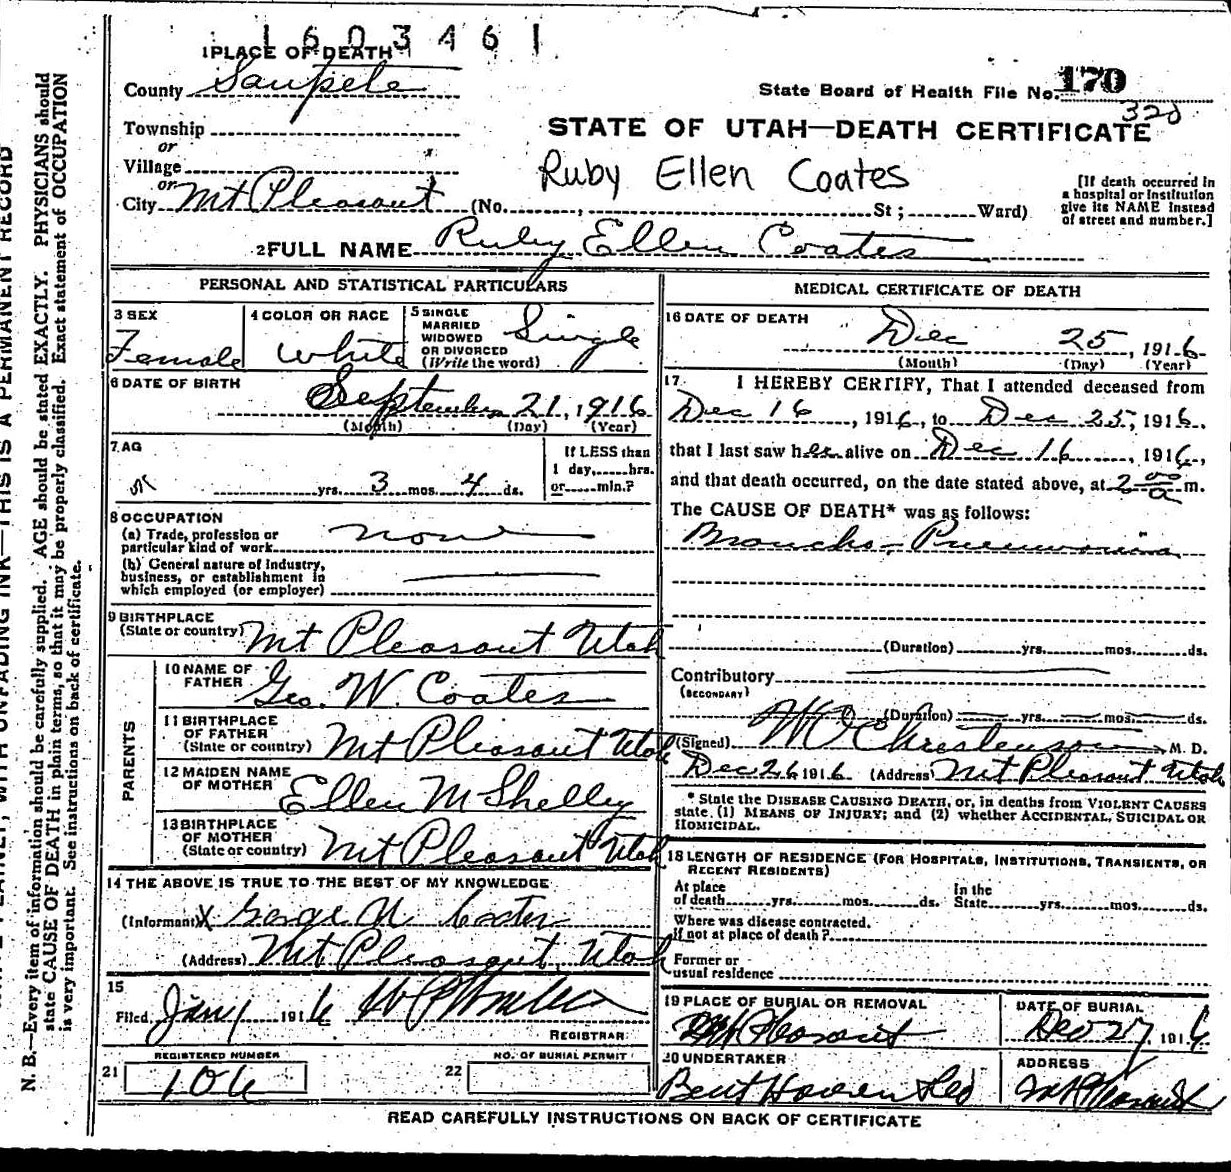 1603461
1 PLACE OF DEATH
County Sanpete
State Board of Health File No. 170
320
Township
or
Village
or
City Mt Pleasant (No. , St ; Ward)
STATE OF UTAH—DEATH CERTIFICATE
Ruby Ellen Coates
[If death occurred in
a hospital or institution
give its NAME instead
of street and number.]
2 FULL NAME Ruby Ellen Coates
PERSONAL AND STATISTICAL PARTICULARS
3 SEX
Female
4 COLOR OR RACE
White
5 SINGLE
MARRIED
WIDOWED
OR DIVORCED
(Write the word)
Single
6 DATE OF BIRTH
September 21, 1916
(Month) (Day) (Year)
7 AG
yrs. 3 mos. 4 ds.
If LESS than
1 day, hrs.
or min.?
8 OCCUPATION
(a) Trade, profession or
particular kind of work
none
(b) General nature of Industry,
business, or establishment in
which employed (or employer)
9 BIRTHPLACE
(State or country) Mt Pleasant Utah
PARENTS
10 NAME OF
FATHER
Geo. W. Coates
11 BIRTHPLACE
OF FATHER
(State or country) Mt Pleasant Utah
12 MAIDEN NAME
OF MOTHER
Ellen M Shelley
13 BIRTHPLACE
OF MOTHER
(State or country) Mt Pleasant Utah
14 THE ABOVE IS TRUE TO THE BEST OF MY KNOWLEDGE
(Informant) X George W Coates
(Address) Mt Pleasant, Utah
15
Filed Jan 1 1916
REGISTRAR
REGISTERED NUMBER
21 106
NO. OF BURIAL PERMIT
22
MEDICAL CERTIFICATE OF DEATH
16 DATE OF DEATH
Dec 25, 1916
(Month) (Day) (Year)
17 I HEREBY CERTIFY, That I attended deceased from
Dec 16, 1916, to Dec 25, 1916,
that I last saw her alive on Dec 16, 1916,
and that death occurred, on the date stated above, at 2 00 a m.
The CAUSE OF DEATH* was as follows:
Broncho-Pneumonia
(Duration) yrs. mos. ds.
Contributory
(SECONDARY)
(Duration) yrs. mos. ds.
(Signed) Christenson M. D.
Dec 26 1916 (Address) Mt Pleasant Utah
* State the DISEASE CAUSING DEATH, or, in deaths from VIOLENT CAUSES
state (1) MEANS OF INJURY; and (2) whether ACCIDENTAL, SUICIDAL OR
HOMICIDAL.
18 LENGTH OF RESIDENCE (FOR HOSPITALS, INSTITUTIONS, TRANSIENTS, OR
RECENT RESIDENTS)
At place
of death yrs. mos. ds.
In the
State yrs. mos. ds.
Where was disease contracted.
If not at place of death?
Former or
usual residence
19 PLACE OF BURIAL OR REMOVAL
Mt Pleasant
DATE OF BURIAL
Dec 27, 1916
20 UNDERTAKER
Bent Hansen
ADDRESS
Mt Pleasant
READ CAREFULLY INSTRUCTIONS ON BACK OF CERTIFICATE
WITH UNFADING INK—THIS IS A PERMANENT RECORD
N. B.—Every item of information should be carefully supplied. AGE should be stated EXACTLY. PHYSICIANS should
state CAUSE OF DEATH in plain terms, so that it may be properly classified. Exact statement of OCCUPATION
is very important. See instructions on back of certificate.